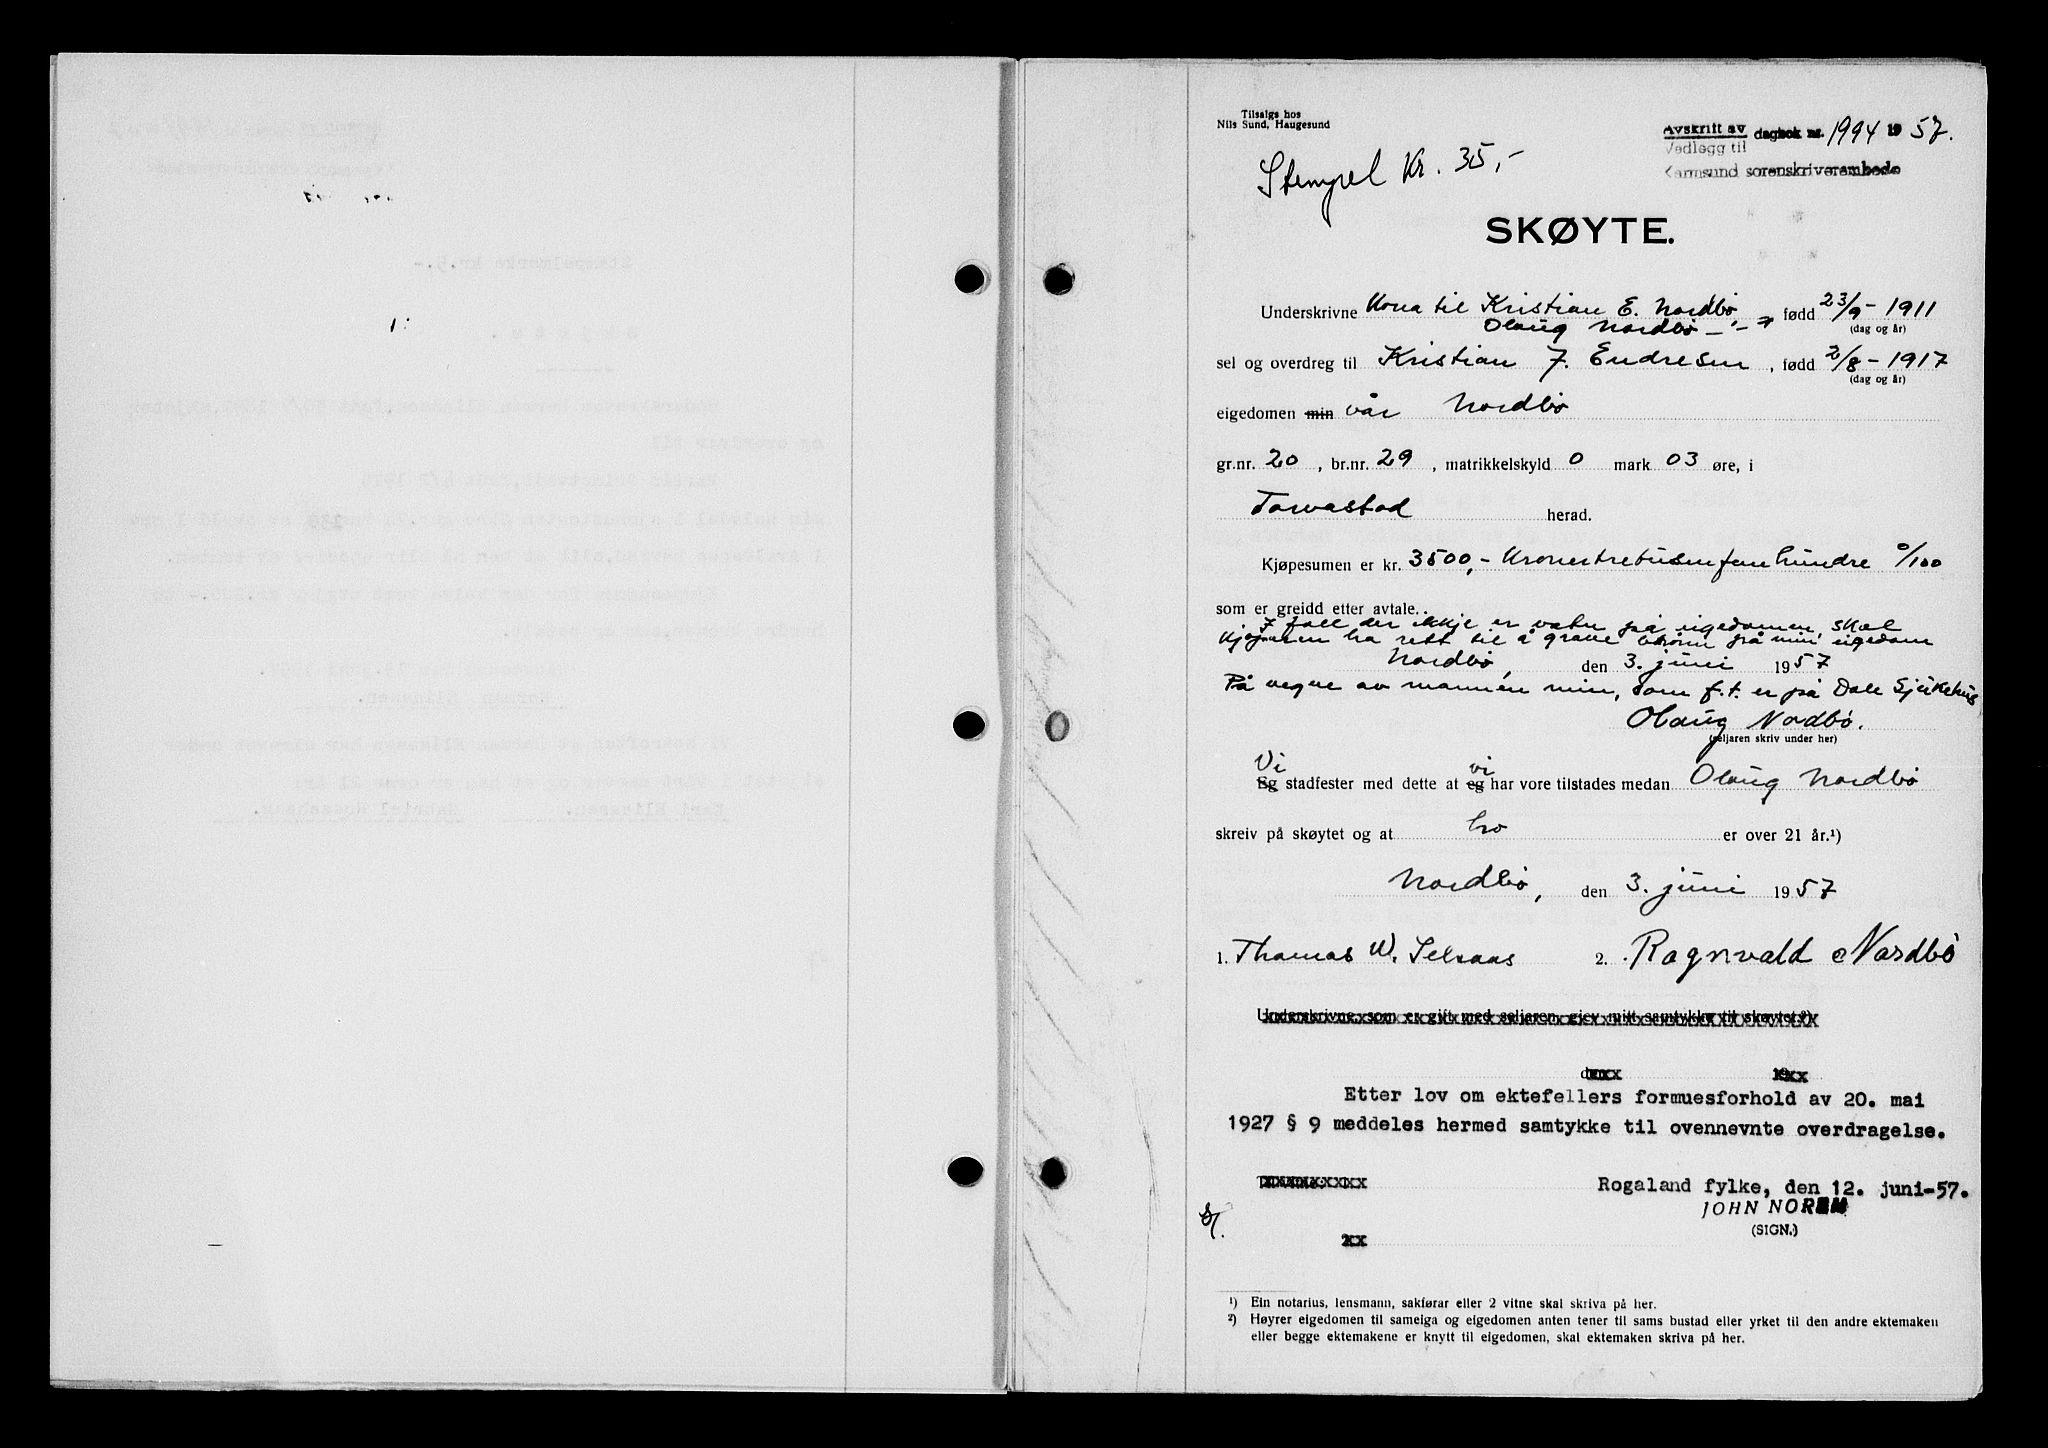 Tilsalgs hos
Nils Sund, Haugesund
Avskrift av dagbok nr. 1994 1957.
Vedlegg til
Karmsund sorenskriverembede
Stempel Kr. 35,-
SKØYTE.
Underskrivne Kona til Kristian E. Nordbø, født 23/9-1911
Olaug Nordbø
(dag og år)
sel og overdreg til Kristian J. Endresen, født 2/8-1917
(dag og år)
eigedomen min vår Nordbø
gr.nr. 20, br.nr. 29, matrikkelskyld 0 mark 03 øre, i
Torvastad herad.
Kjøpesumen er kr. 3500,- Kronertretusenfemhundre 0/100
som er greidd etter avtale.
I fall der ikkje er vatn på eigedomen, skal
Kjøparen ha rett til å grave brønn på min eigedom
Nordbø, den 3. juni 1957
På vegne av mannen min, som f.t. er på Dale Sjukehus
Olaug Nordbø.
(seljaren skriv under her)
Vi vi
Eg stadfester med dette at eg har vore tilstades medan Olaug Nordbø
skreiv på skøytet og at ho er over 21 år.¹)
Nordbø, den 3. juni 1957
1. Thomas W. Selsaas 2. Ragnvald Nordbø
Underskrivne, som er gift med seljaren, gjev mitt samtykke til skøytet.²)
den 19
Etter lov om ektefellers formuesforhold av 20. mai
1927 § 9 meddeles hermed samtykke til ovennevnte overdragelse.
Rogaland fylke, den 12. juni-57.
JOHN NOREM
(SIGN.)
¹) Ein notarius, lensmann, sakførar eller 2 vitne skal skriva på her.
²) Høyrer eigedomen til sameiga og eigedomen anten tener til sams bustad eller yrket til den andre ektemaken
eller begge ektemakene er knytt til eigedomen, skal ektemaken skriva på her.